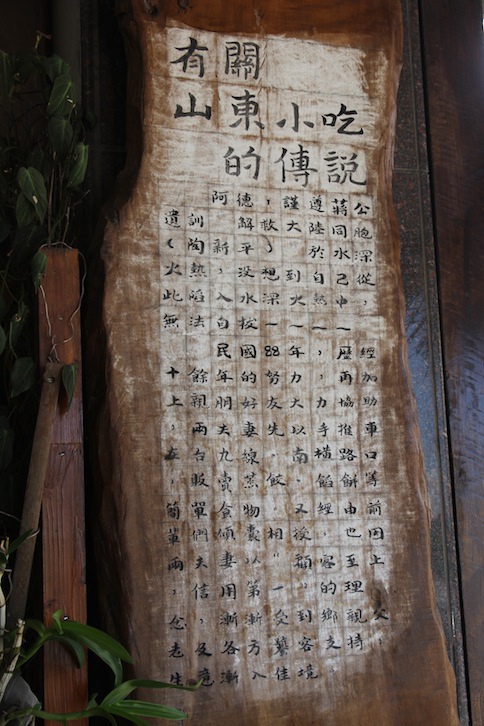 有關
山東小吃
的傳說
公胞深從，經加助車口等前因上父，
蔣同水己中一歷再協推路餅由也至理親持
遵陸於白熟一，，力手橫餡經，客的鄉支，
謹大到火一年力大以南．又後顧，到客境
，救）想深一88努友先．飯，相"一受佳
德解平没水國的好妻線蒸物囊以第漸方入
阿新，入白民年朋夫九賣食傾妻用漸各漸
訓陶熱陷法餘親兩台販單們夫信，及意
遺（火此無十上，在，簡兩，念老生